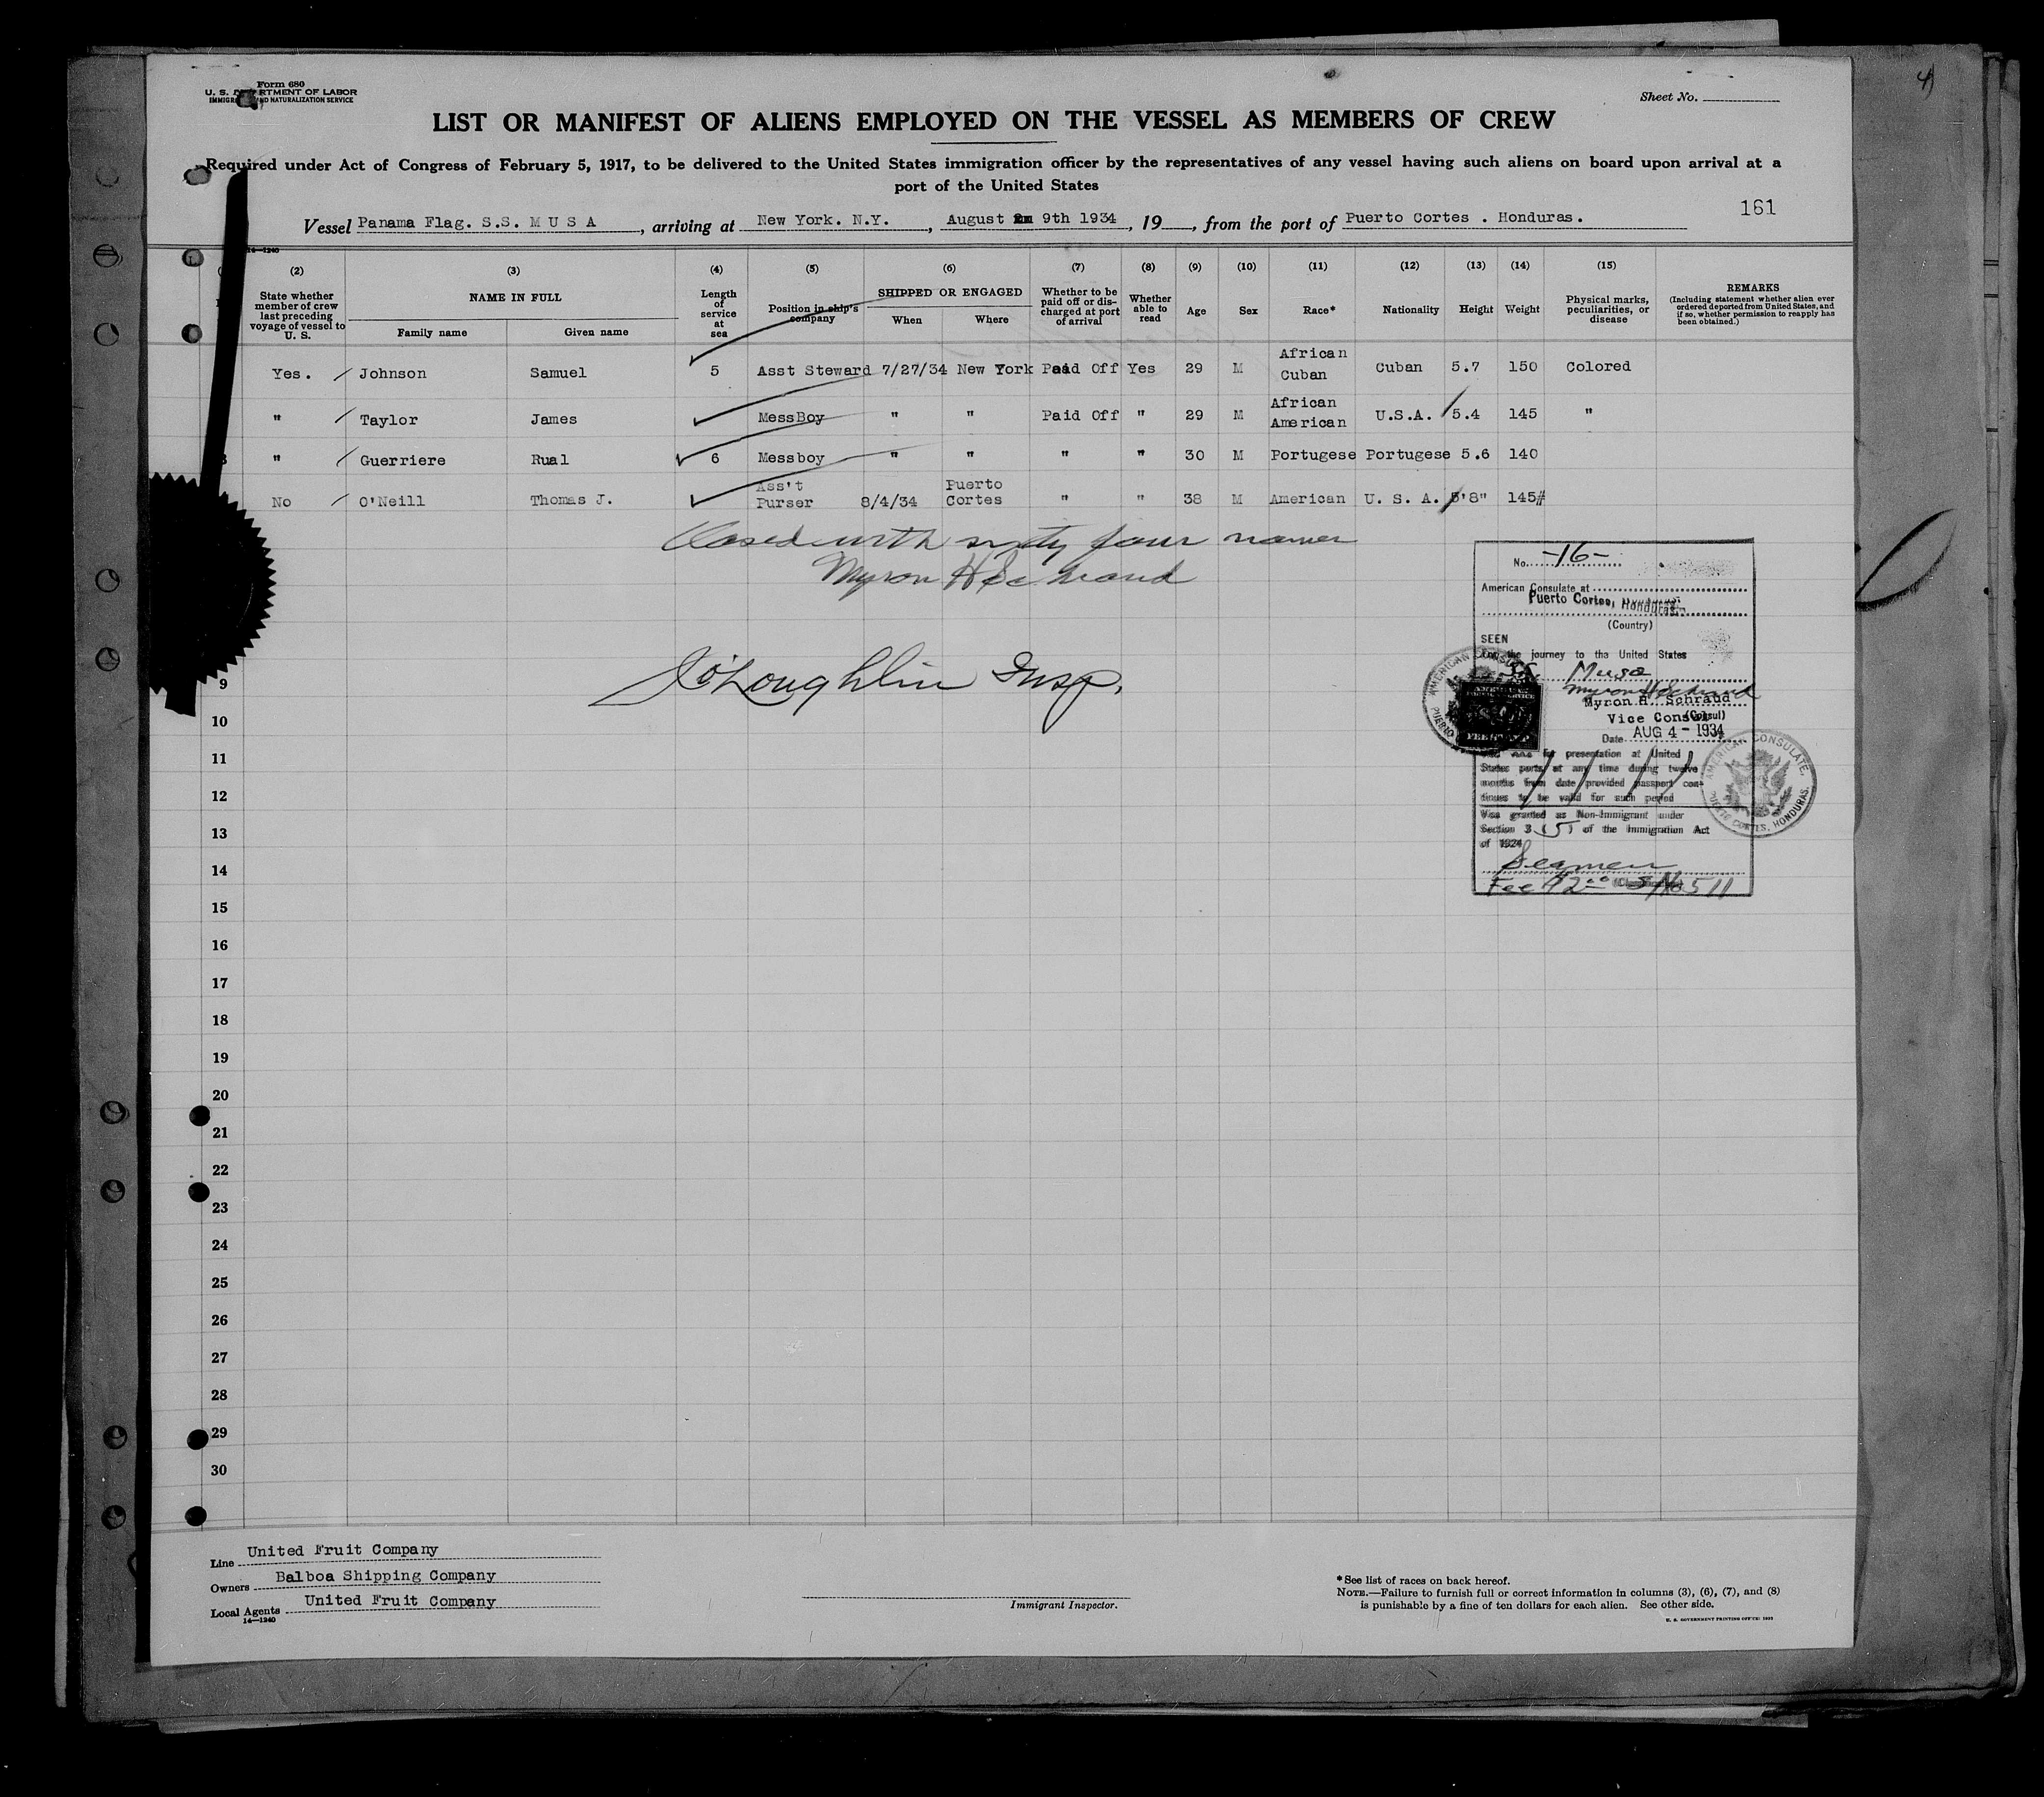 Form 680
U. S. DEPARTMENT OF LABOR
IMMIGRATION AND NATURALIZATION SERVICE
4
Sheet No.
LIST OR MANIFEST OF ALIENS EMPLOYED ON THE VESSEL AS MEMBERS OF CREW
Required under Act of Congress of February 5, 1917, to be delivered to the United States immigration officer by the representatives of any vessel having such aliens on board upon arrival at a
port of the United States
161
Vessel Panama Flag. S.S. M U S A, arriving at New York. N.Y., August 9th 1934, 19, from the port of Puerto Cortes . Honduras.
14—1240
(2) (3) (4) (5) (6) (7) (8) (9) (10) (11) (12) (13) (14) (15)
State whether member of crew last preceding voyage of vessel to U. S.
NAME IN FULL
Family name Given name
Length of service at sea
Position in ship's company
SHIPPED OR ENGAGED
When Where
Whether to be paid off or discharged at port of arrival
Whether able to read
Age Sex Race* Nationality Height Weight
Physical marks, peculiarities, or disease
REMARKS
(Including statement whether alien ever ordered deported from United States, and if so, whether permission to reapply has been obtained.)
Yes. Johnson Samuel 5 Asst Steward 7/27/34 New York Paid Off Yes 29 M African Cuban Cuban 5.7 150 Colored
" Taylor James MessBoy " " Paid Off " 29 M African American U.S.A. 5.4 145 "
3 " Guerriere Rual 6 Messboy " " " " 30 M Portugese Portugese 5.6 140
No O'Neill Thomas J. Ass't Purser 8/4/34 Puerto Cortes " " 38 M American U. S. A. 5'8" 145#
Closed with sixty four names
Myron H Schraud
O'Loughlin Insp.
No. -16-
American Consulate at
Puerto Cortes, Honduras.
(Country)
SEEN
For the journey to the United States
SS Musa
Myron H Schraud
Myron H. Schraud
Vice Consul
(Consul)
Date AUG 4 - 1934
for presentation at United
States ports at any time during twelve
months from date provided passport con-
tinues to be valid for such period
Visa granted as Non-Immigrant under
Section 3 (5) of the Immigration Act
of 1924
Seamen
Fee $2.00 S/No 511
AMERICAN CONSULATE, PUERTO CORTES, HONDURAS.
9
10
11
12
13
14
15
16
17
18
19
20
21
22
23
24
25
26
27
28
29
30
Line United Fruit Company
Owners Balboa Shipping Company
Local Agents United Fruit Company
14—1240
Immigrant Inspector.
*See list of races on back hereof.
NOTE.—Failure to furnish full or correct information in columns (3), (6), (7), and (8)
is punishable by a fine of ten dollars for each alien. See other side.
U. S. GOVERNMENT PRINTING OFFICE: 1933